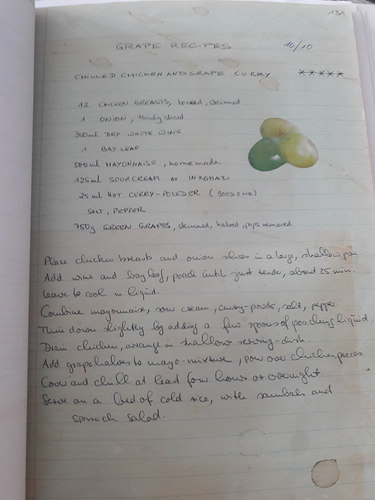 13A
GRAPE RECIPES 10/10
CHILLED CHICKEN AND GRAPE CURRY *****
12 CHICKEN BREASTS, boned, skinned
1 ONION, thinly sliced
350ml DRY WHITE WINE
1 BAY LEAF
500ml MAYONNAISE, home made
125ml SOUR CREAM or INKOMAZI
25ml HOT CURRY-POWDER
SALT, PEPPER
750g GREEN GRAPES, skinned, halved, pips removed
Place chicken breasts and onion slices in a large, shallow pan.
Add wine and bay leaf, poach until just tender, about 25 min.
Leave to cool in liquid.
Combine mayonnaise, sour cream, curry-powder, salt, pepper.
Thin down slightly by adding a few spoons of poaching liquid.
Drain chicken, arrange in shallow serving-dish.
Add grape halves to mayo-mixture, pour over chicken pieces
Cover and chill at least four hours or overnight.
Serve on a bed of cold rice, with sambals and
spinach salad.